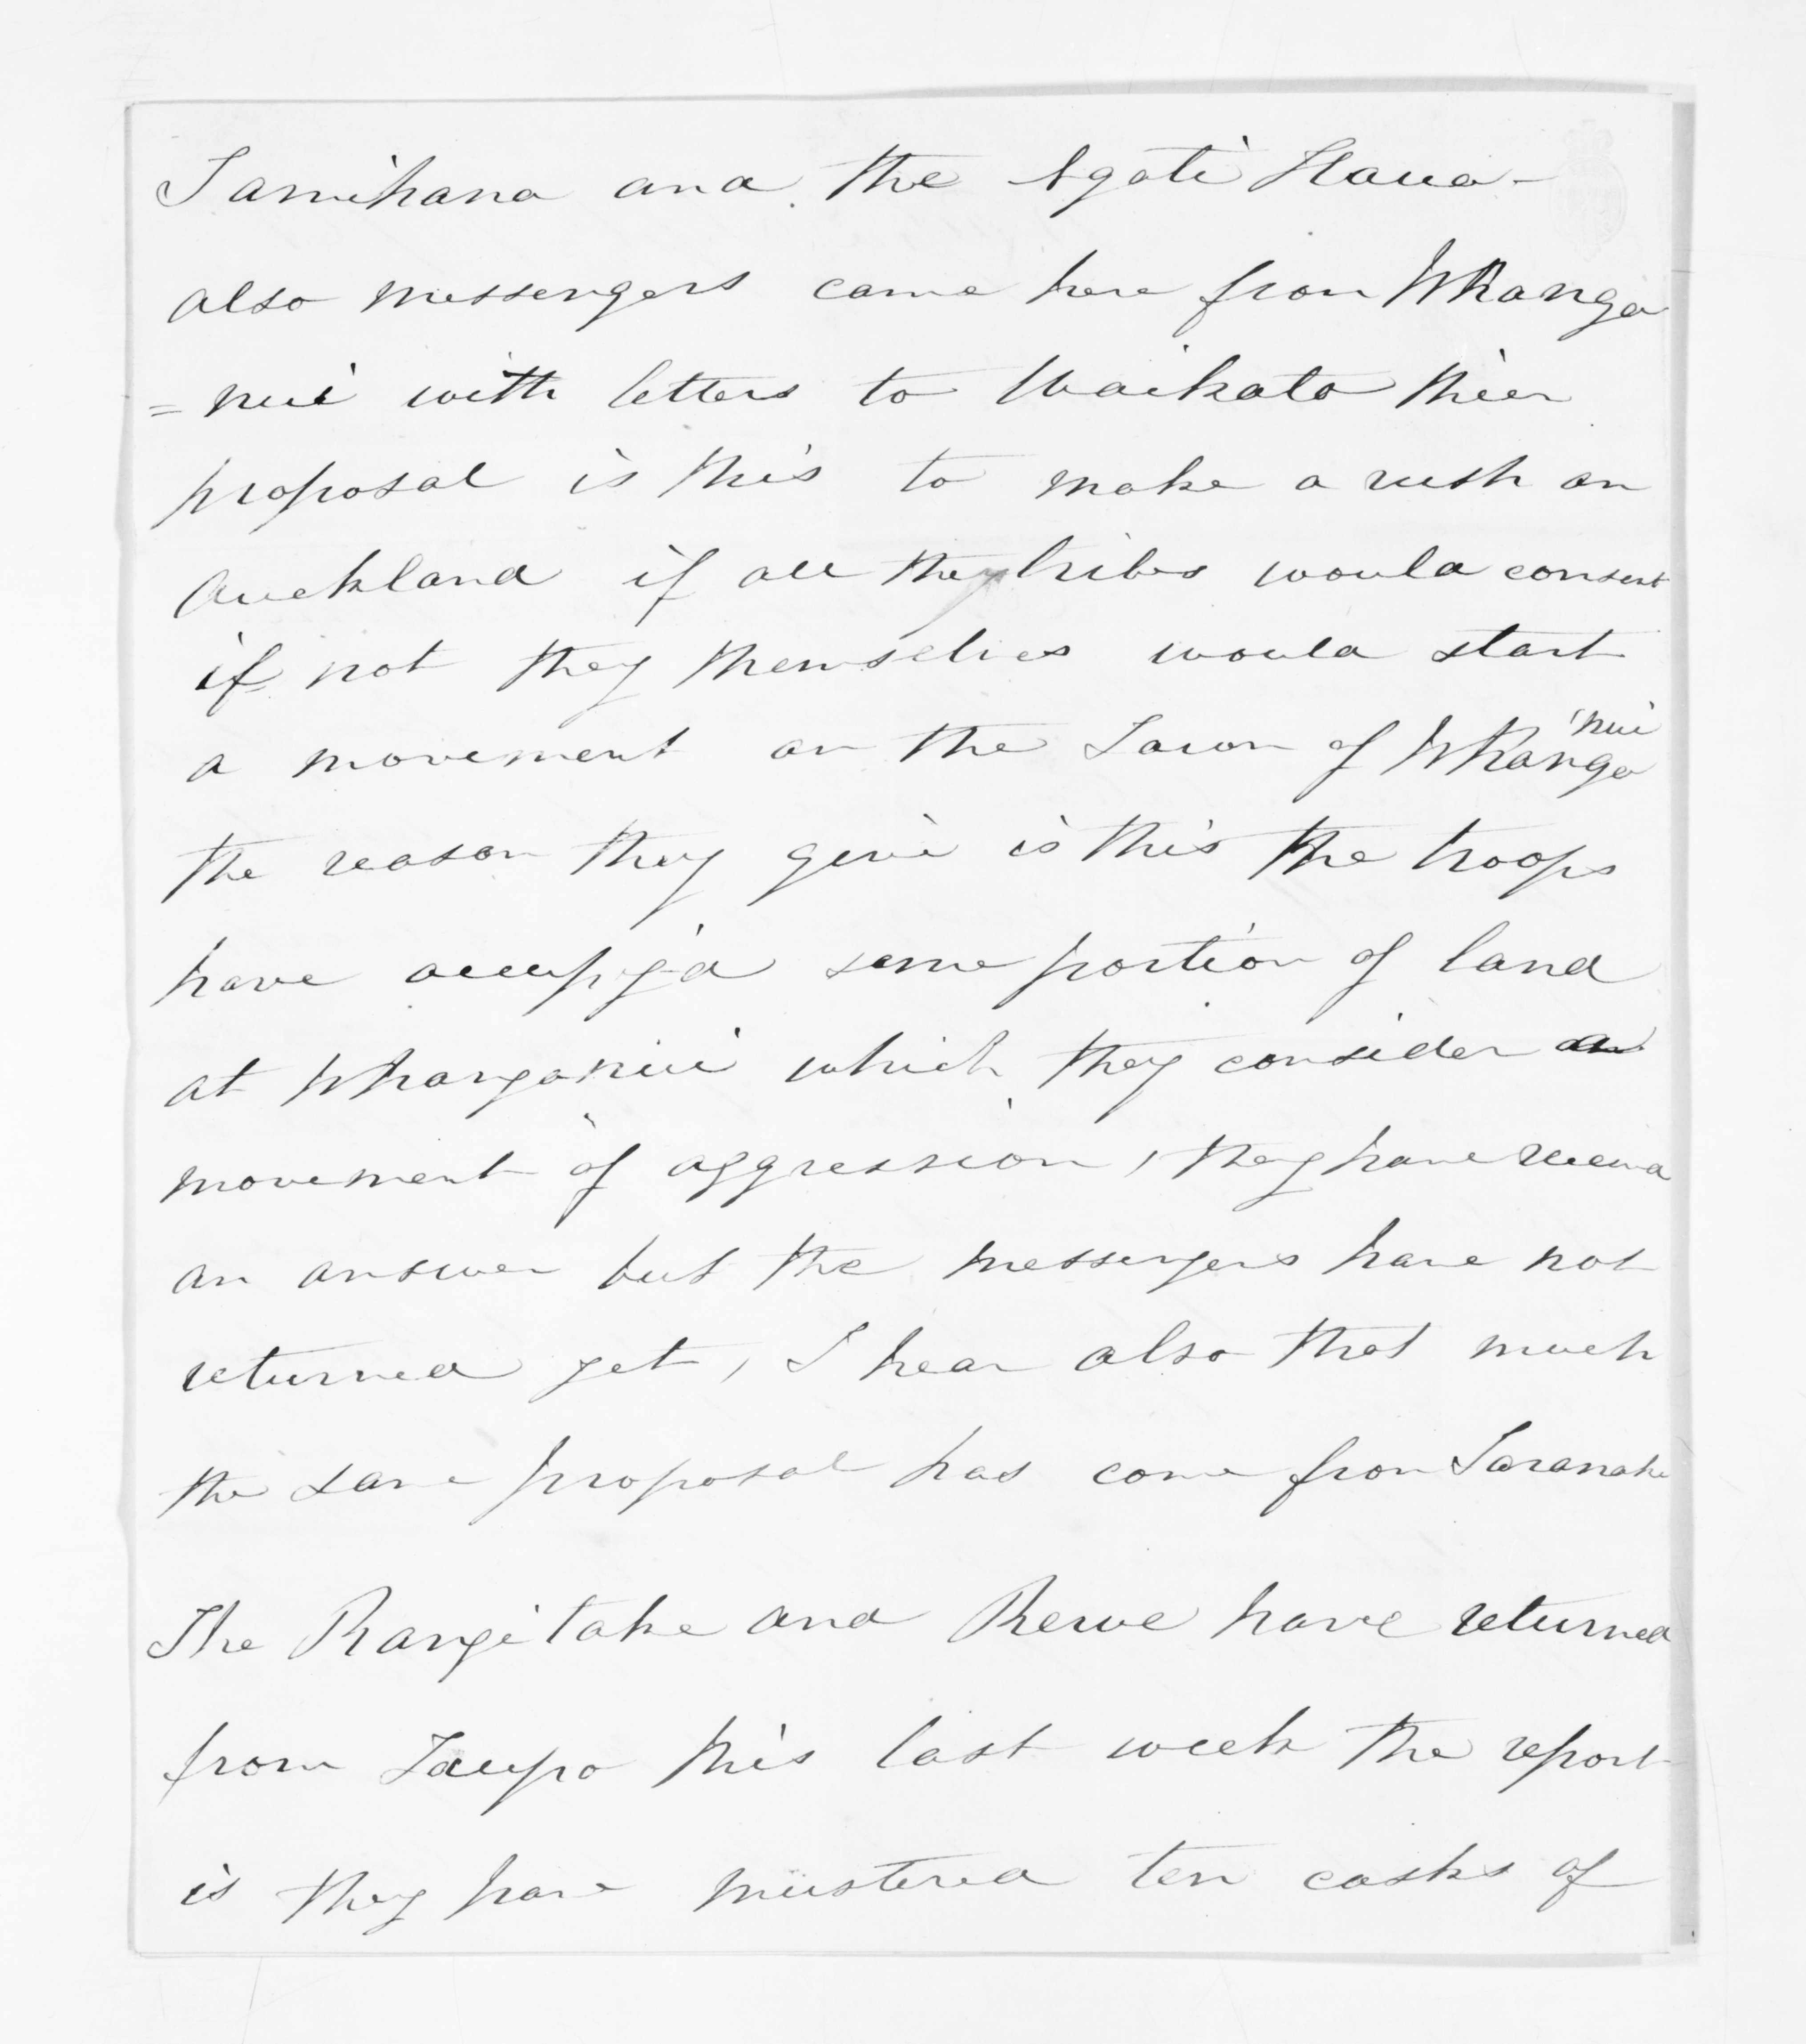 Tamihana and the Ngati Haua -
also messengers came here from Whanga
= nui with letters to Waikato thier
proposal is this to make a rush on
Auckland if all the tribes would consent
if not they themselves would start
a movement on the Town of Whanga 'nui
the reason they give is this the troops
have occupy'd some portion of land
at Whanganui which they consider a
movement of aggression, they have receivd
an answer but the messengers have not
returned yet, I hear also that much
the same proposal has come from Taranake
The Rangitake and Rewe have returned
from Taupo this last week the report
is they have mustered ten casks of